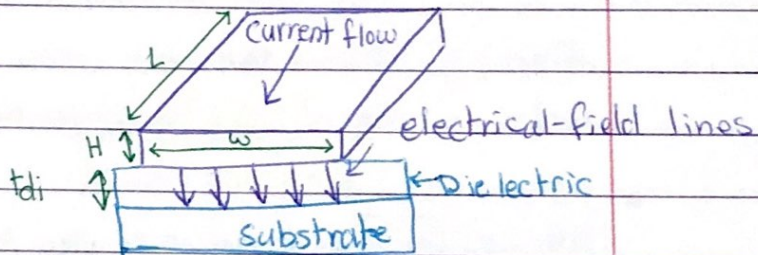 Current flow
L
electrical-field lines
H
w
tdi
Dielectric
substrate